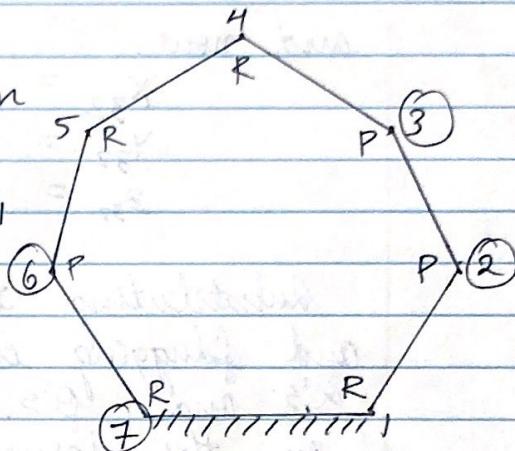 4
R
n
5 R
P 3
6 P
P 2
R
R
7
1